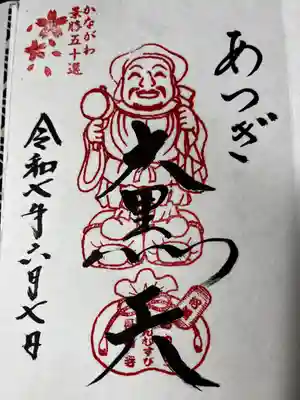 あつぎ
大黒天
むすび
かながわ
景勝五十選
令和七年六月七日